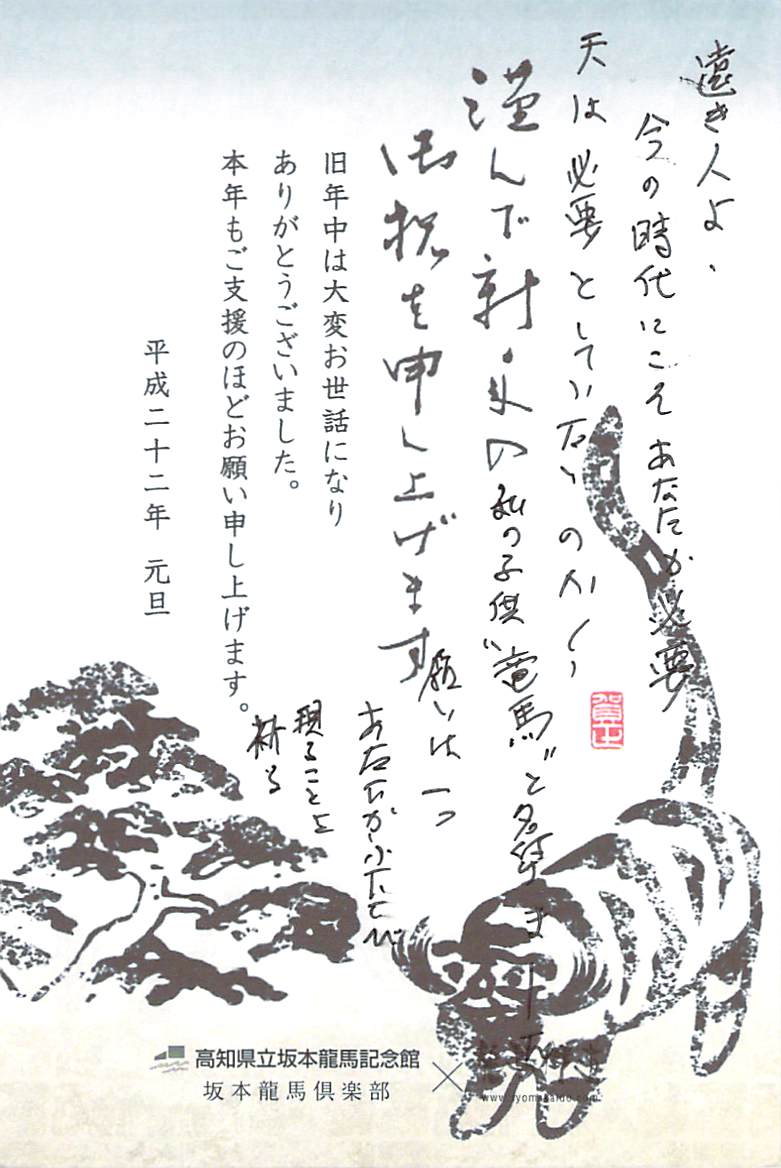 遠き人よ、
今の時代にこそあなたが必要
天は必要としていないのか
謹んで新年の
御祝を申し上げます
私の子供“竜馬”と名付けました
願いは一つ
あなたがふたたび
現ることを
祈る
旧年中は大変お世話になり
ありがとうございました。
本年もご支援のほどお願い申し上げます。
平成二十二年 元旦
賀正
高知県立坂本龍馬記念館
坂本龍馬倶楽部